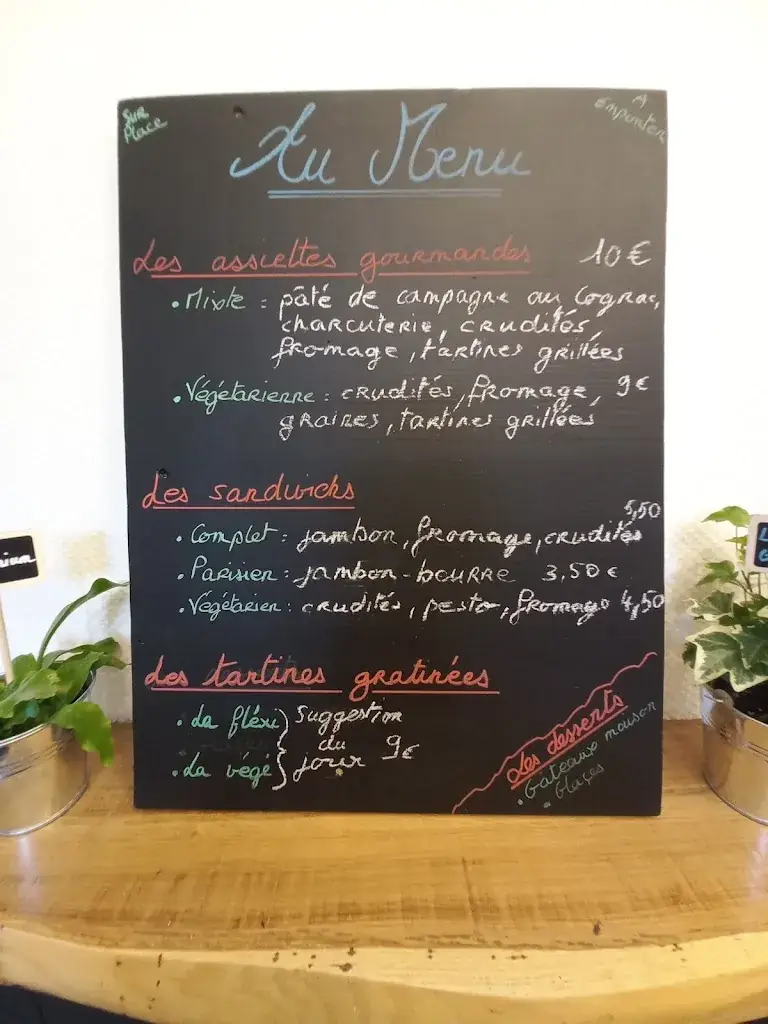 Sur
Place
A
Emporter
Au Menu
Les assiettes gourmandes 10€
• Mixte : pâté de campagne au Cognac,
charcuterie, crudités,
fromage, tartines grillées
• Végétarienne : crudités, fromage, 9€
graines, tartines grillées
Les sandwichs
5,50
• Complet : jambon, fromage, crudités
• Parisien : jambon-beurre 3,50€
• Végétarien : crudités, pesto, fromage 4,50
Les tartines gratinées
• La fléxi Suggestion
du
• La végé jour 9€
Les desserts
• Gâteaux maison
• Glaces